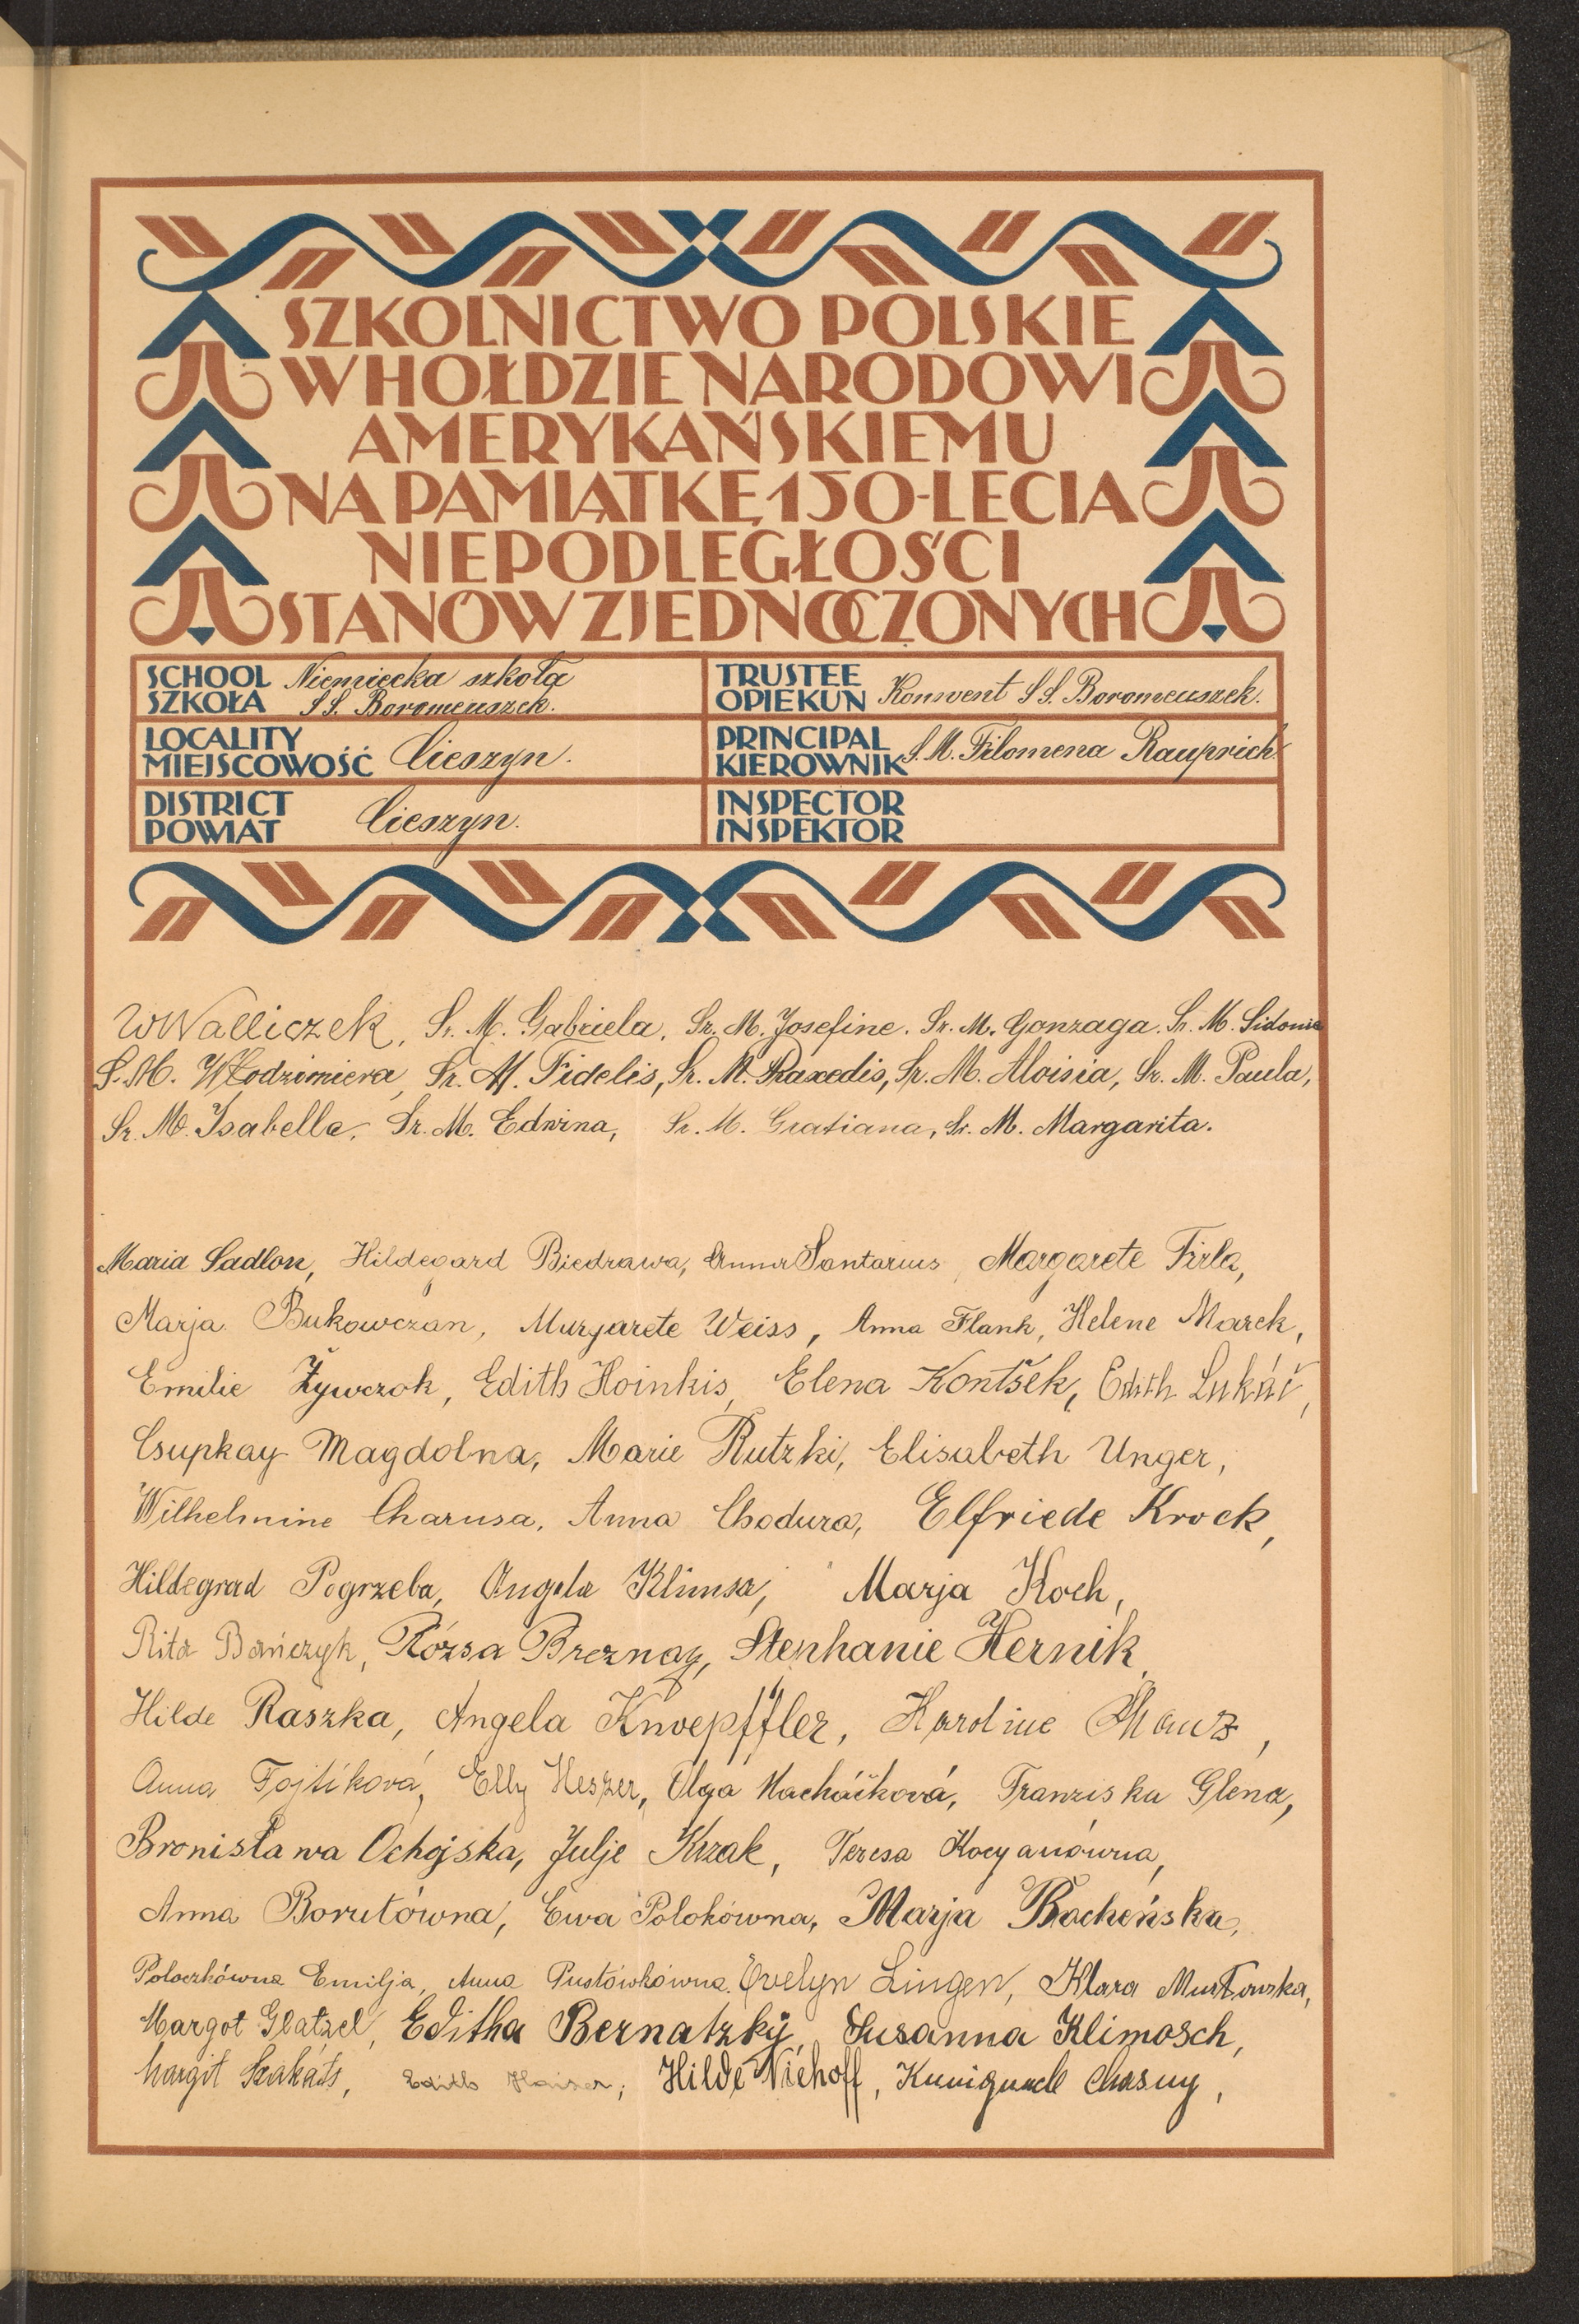 SZKOLNICTWO POLSKIE
W HOŁDZIE NARODOWI
AMERYKAŃSKIEMU
NA PAMIĄTKĘ 150-LECIA
NIEPODLEGŁOŚCI
STANÓW ZJEDNOCZONYCH
SCHOOL SZKOŁA Niemiecka szkoła S.S. Boromeuszek.
TRUSTEE OPIEKUN Konwent S.S. Boromeuszek.
LOCALITY MIEJSCOWOŚĆ Cieszyn.
PRINCIPAL KIEROWNIK S.M. Filomena Rauprich
DISTRICT POWIAT Cieszyn.
INSPECTOR INSPEKTOR
W Walliczek, Sr. M. Gabriela, Sr. M. Josefine. Sr. M. Gonzaga. Sr. M. Sidonia
S. M. Włodzimiera, Sr. M. Fidelis, Sr. M. Praxedis, Sr. M. Aloisia, Sr. M. Paula,
Sr. M. Isabella. Sr. M. Edwina, Sr. M. Gratiana, Sr. M. Margarita.
Maria Sadlon, Hildegard Biedrawa, Anna Santarius, Margarete Firla,
Marja Bukowczan, Margarete Weiss, Anna Flank, Helene Marek,
Emilie Żywczok, Edith Hoinkis, Elena Kontšek, Edith Lukáč,
Csupkay Magdolna, Marie Rutzki, Elisabeth Unger,
Wilhelmine Charusa, Anna Chodura, Elfriede Krock,
Hildegrad Pogrzeba, Angela Klimsa, Marja Koch,
Rita Bańczyk, Rózsa Breznay, Stephanie Hernik,
Hilde Raszka, Angela Knoepffler, Karoline
Anna Fojtíková, Elly Heszer, Olga Macháčková, Franziska Glena,
Bronisława Ochojska, Julje Krzak, Teresa Kocyanówna,
Anna Borutówna, Ewa Polokówna, Marja Bocheńska,
Poloczkówna Emilja, Anna Pustówkówna. Evelyn Lingen, Klara
Margot Glatzel, Editha Bernatzky, Susanna Klimosch,
Margit Szakáts, Edith Haiser, Hilde Niehoff, Kunigunde Chasny,